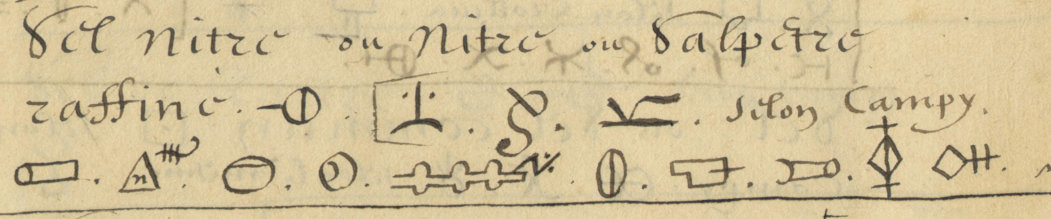 Sel nitre ou Nitre ou Salpêtre
raffiné. selon Campy.